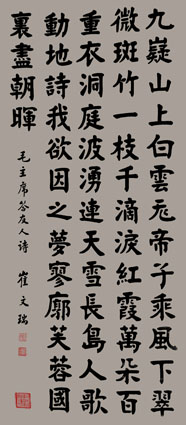 九嶷山上白雲飛帝子乘風下翠
微斑竹一枝千滴淚紅霞萬朵百
重衣洞庭波湧連天雪長島人歌
動地詩我欲因之夢寥廓芙蓉國
裏盡朝暉
毛主席答友人诗 崔文瑞